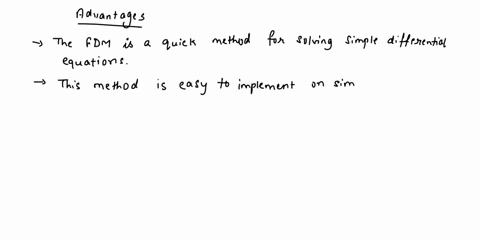 Advantages
→ The FDM is a quick method for solving simple differential
equations.
→ This method is easy to implement on sim